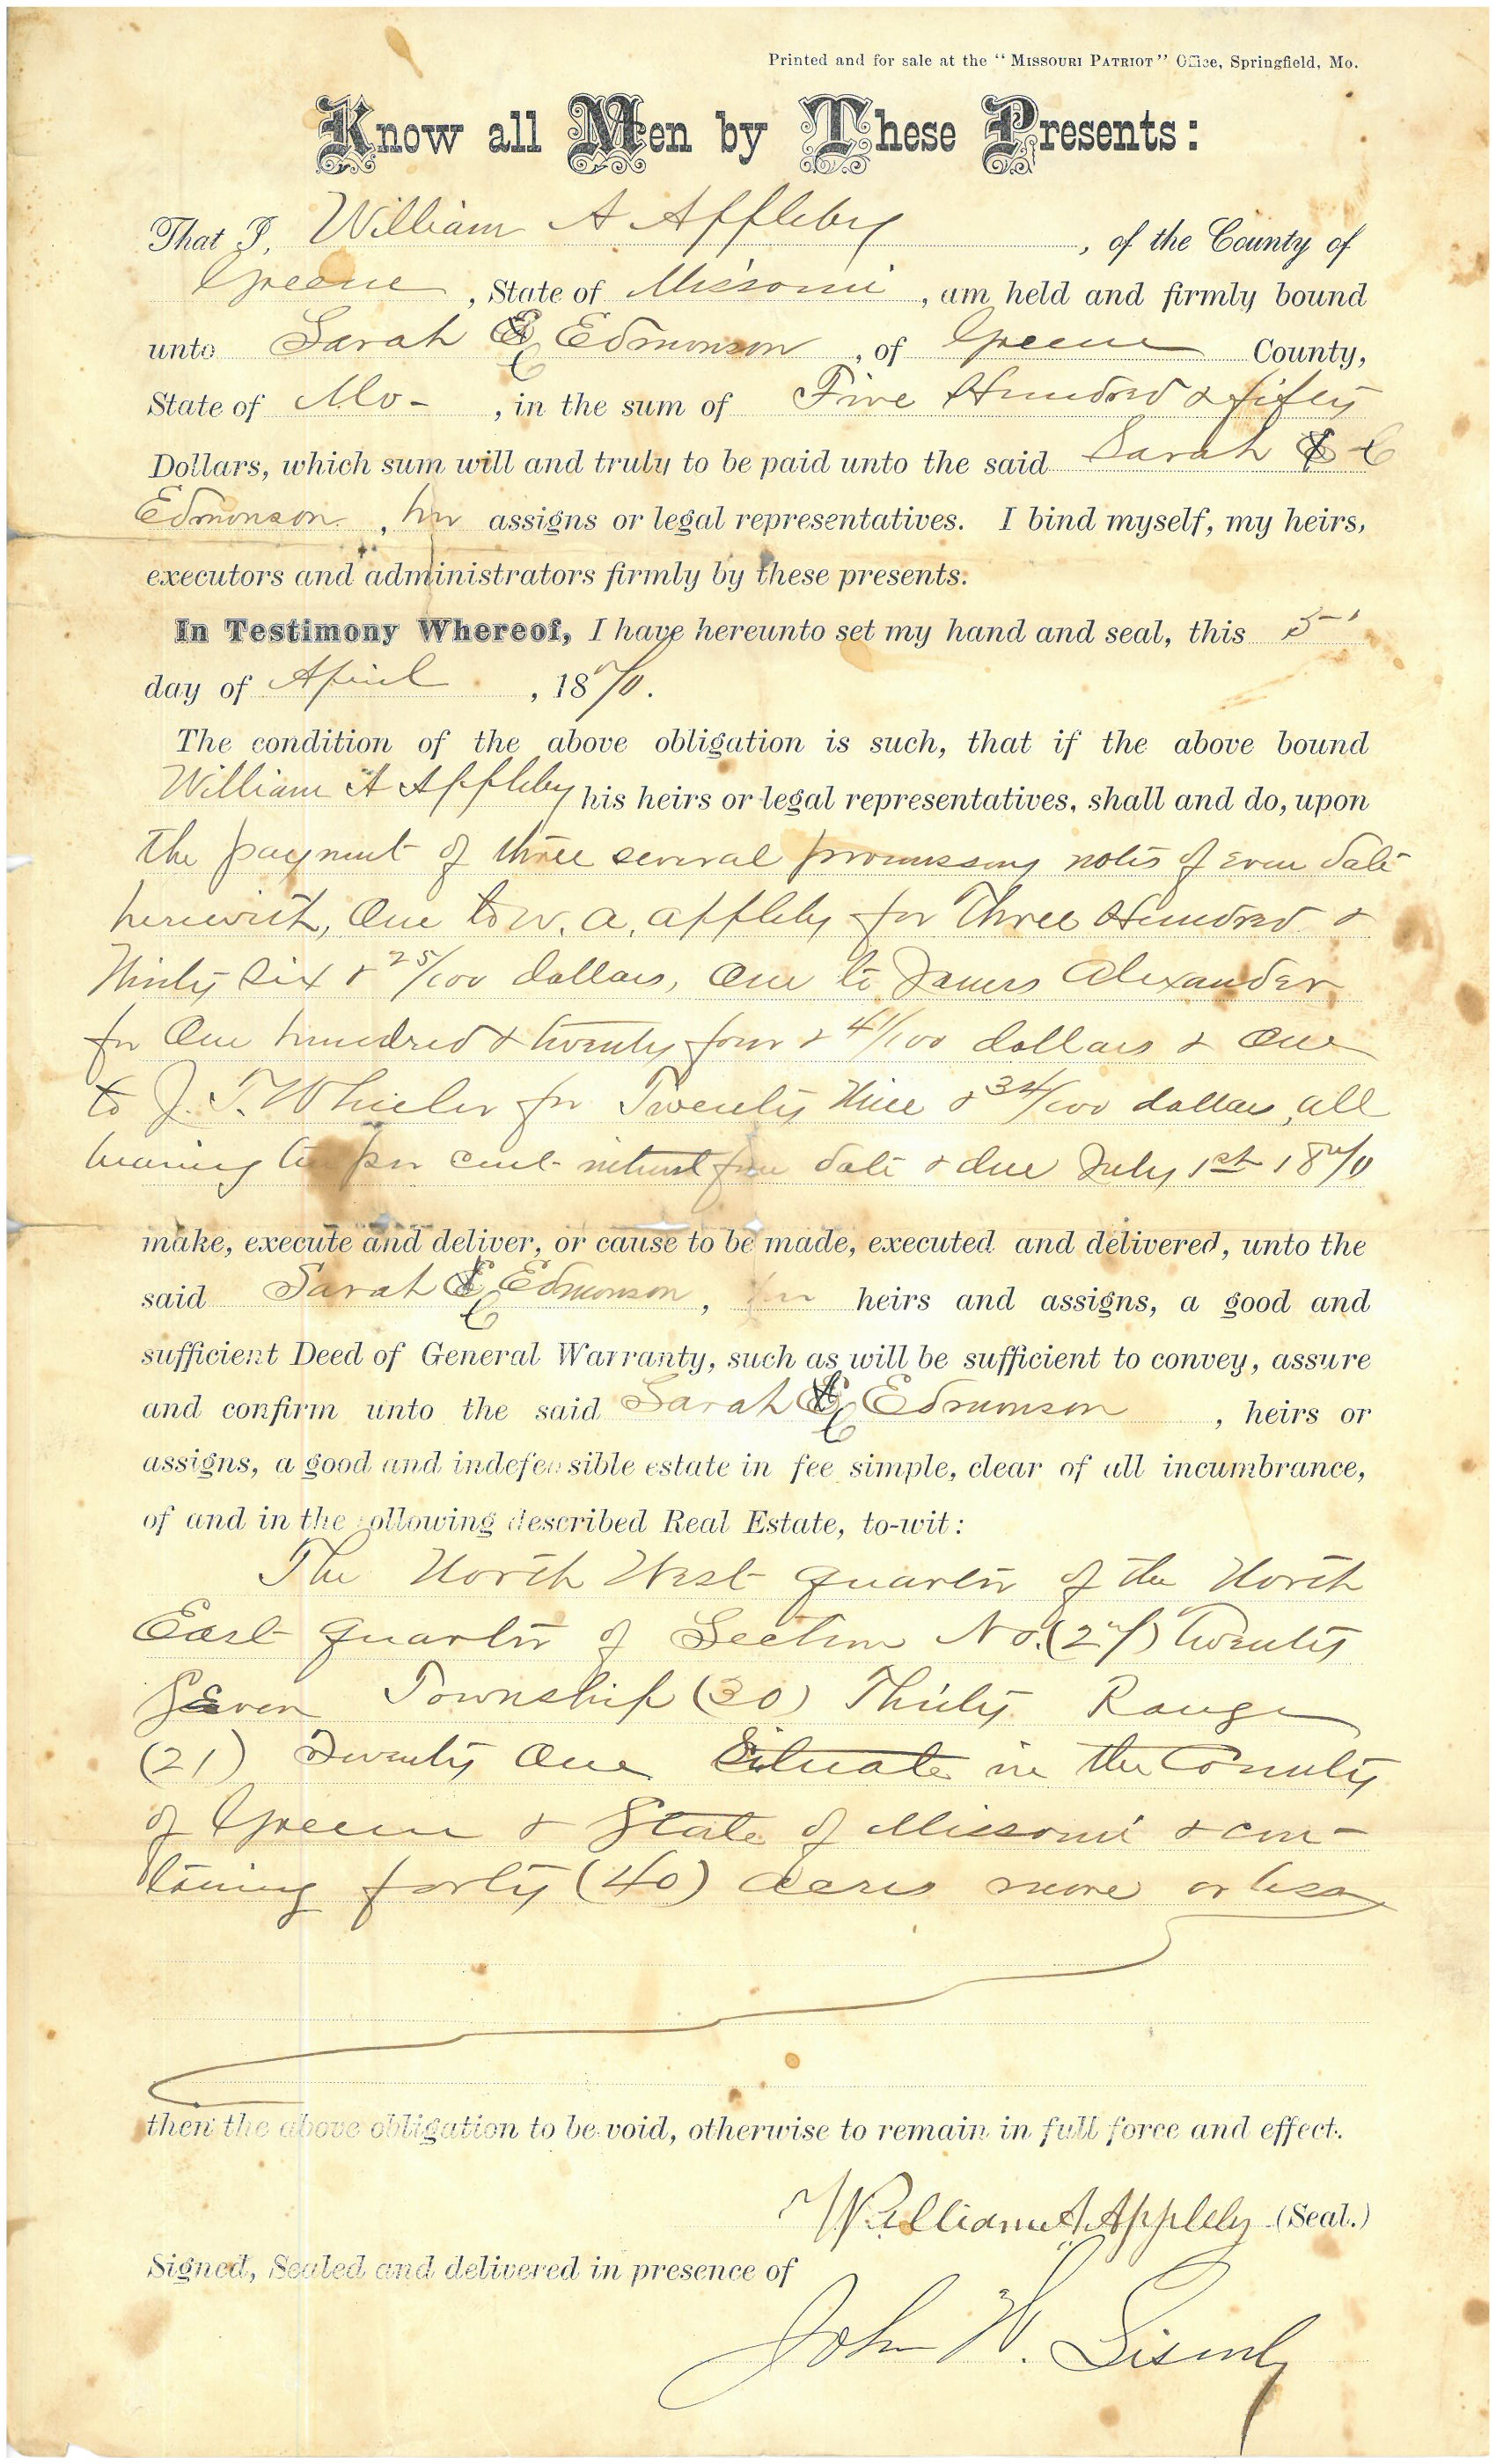 Printed and for sale at the "Missouri Patriot" Office, Springfield, Mo.
Know all Men by These Presents:
That I, William A Appleby, of the County of
Greene, State of Missouri, am held and firmly bound
unto Sarah C Edmonson, of Greene County,
State of Mo-, in the sum of Five Hundred & fifty
Dollars, which sum will and truly to be paid unto the said Sarah C
Edmonson, her assigns or legal representatives. I bind myself, my heirs,
executors and administrators firmly by these presents.
In Testimony Whereof, I have hereunto set my hand and seal, this 5
day of April, 1870.
The condition of the above obligation is such, that if the above bound
William A Appleby his heirs or legal representatives, shall and do, upon
the payment of three several promissory notes of even date
herewith, One to W. A. Appleby for Three Hundred &
Thirty Six & 25/100 dollars, One to James Alexander
for One hundred & twenty four & 41/100 dollars & One
to J. T. Wheeler for Twenty Nine & 34/100 dollars, all
bearing ten per cent interest from date & due July 1st 1870
make, execute and deliver, or cause to be made, executed and delivered, unto the
said Sarah C Edmonson, her heirs and assigns, a good and
sufficient Deed of General Warranty, such as will be sufficient to convey, assure
and confirm unto the said Sarah C Edmonson, heirs or
assigns, a good and indefeasible estate in fee simple, clear of all incumbrance,
of and in the following described Real Estate, to-wit:
The North West quarter of the North
East quarter of Section No. (27) Twenty
Seven Township (30) Thirty Range
(21) Twenty One Situate in the County
of Greene & State of Missouri & con-
taining forty (40) acres more or less
then the above obligation to be void, otherwise to remain in full force and effect.
William A Appleby (Seal.)
Signed, Sealed and delivered in presence of
John W. Lisenby